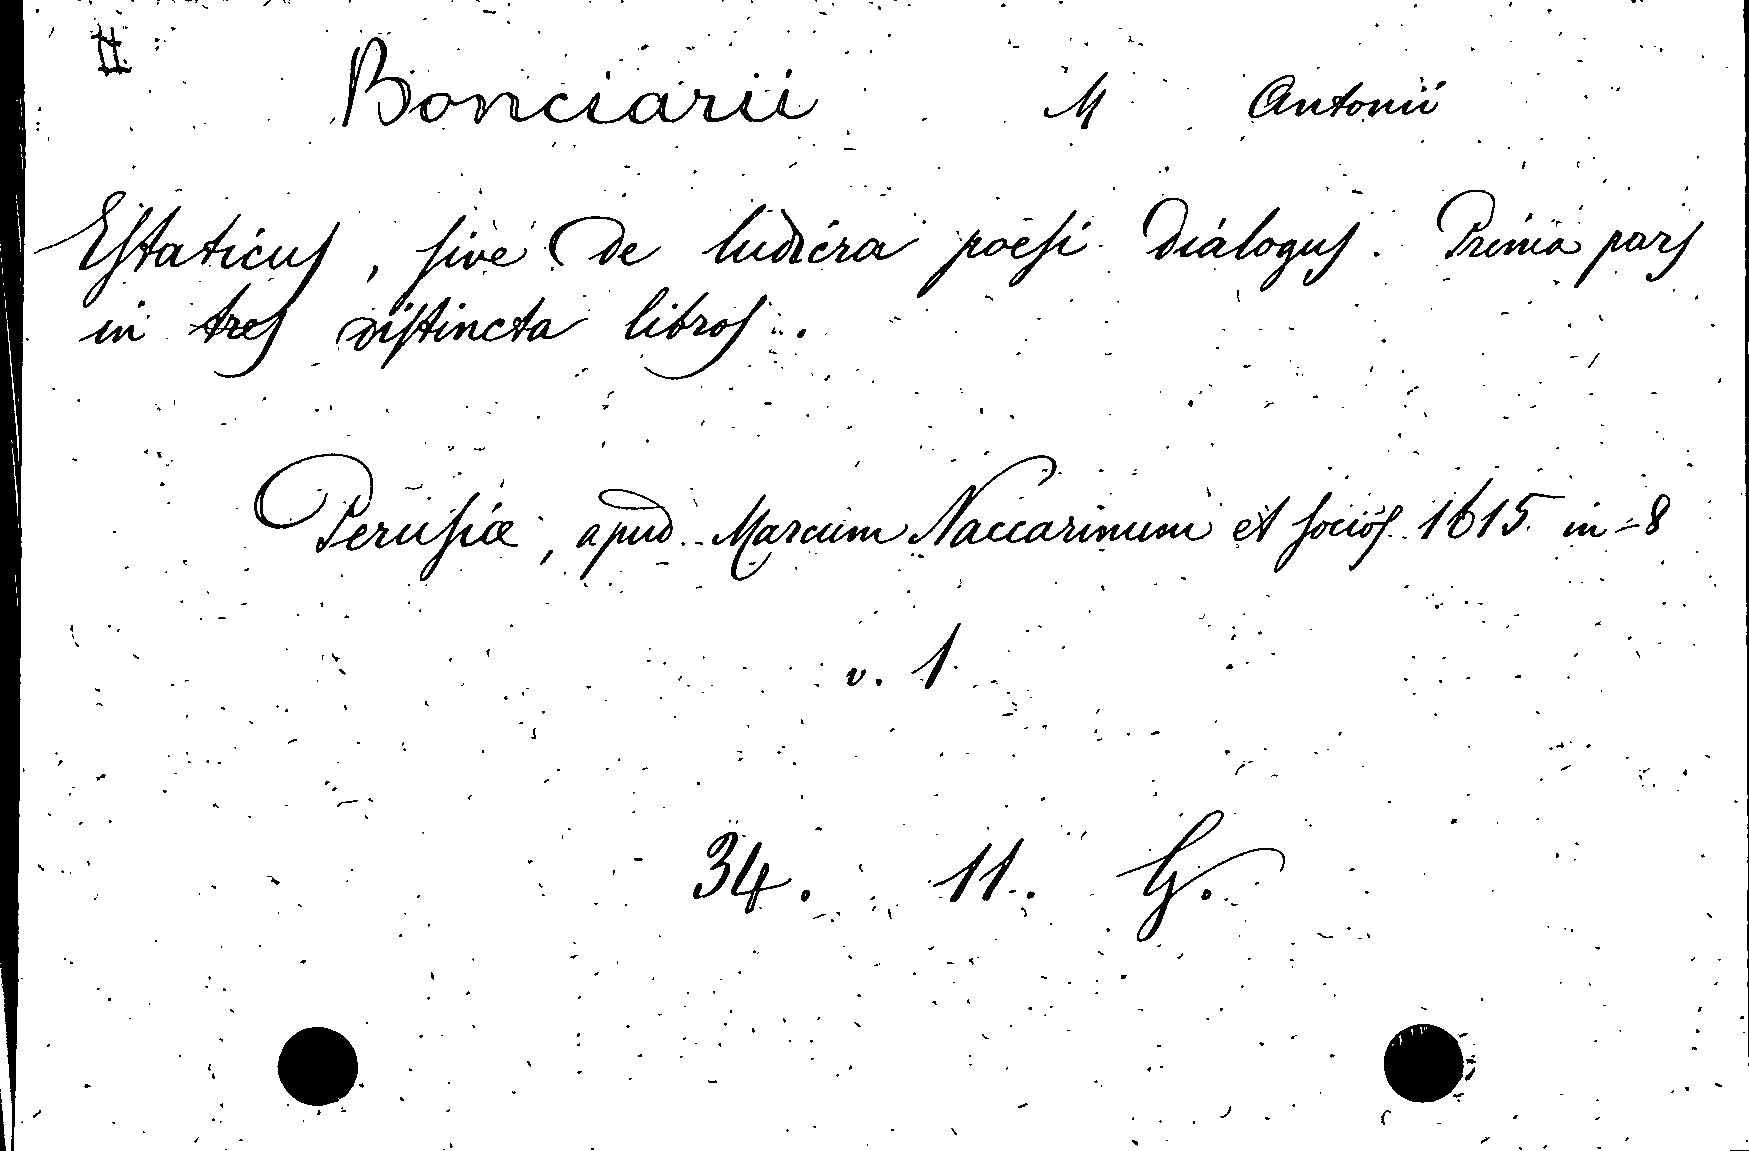 Bonciarii M Antonii
Estaticus, sive De ludicra poesi Dialogus. Prima pars
in tres distincta libros.
Perusiæ, apud Marcum Naccarinum et socios 1615 in-8
v. 1
34. 11. G.